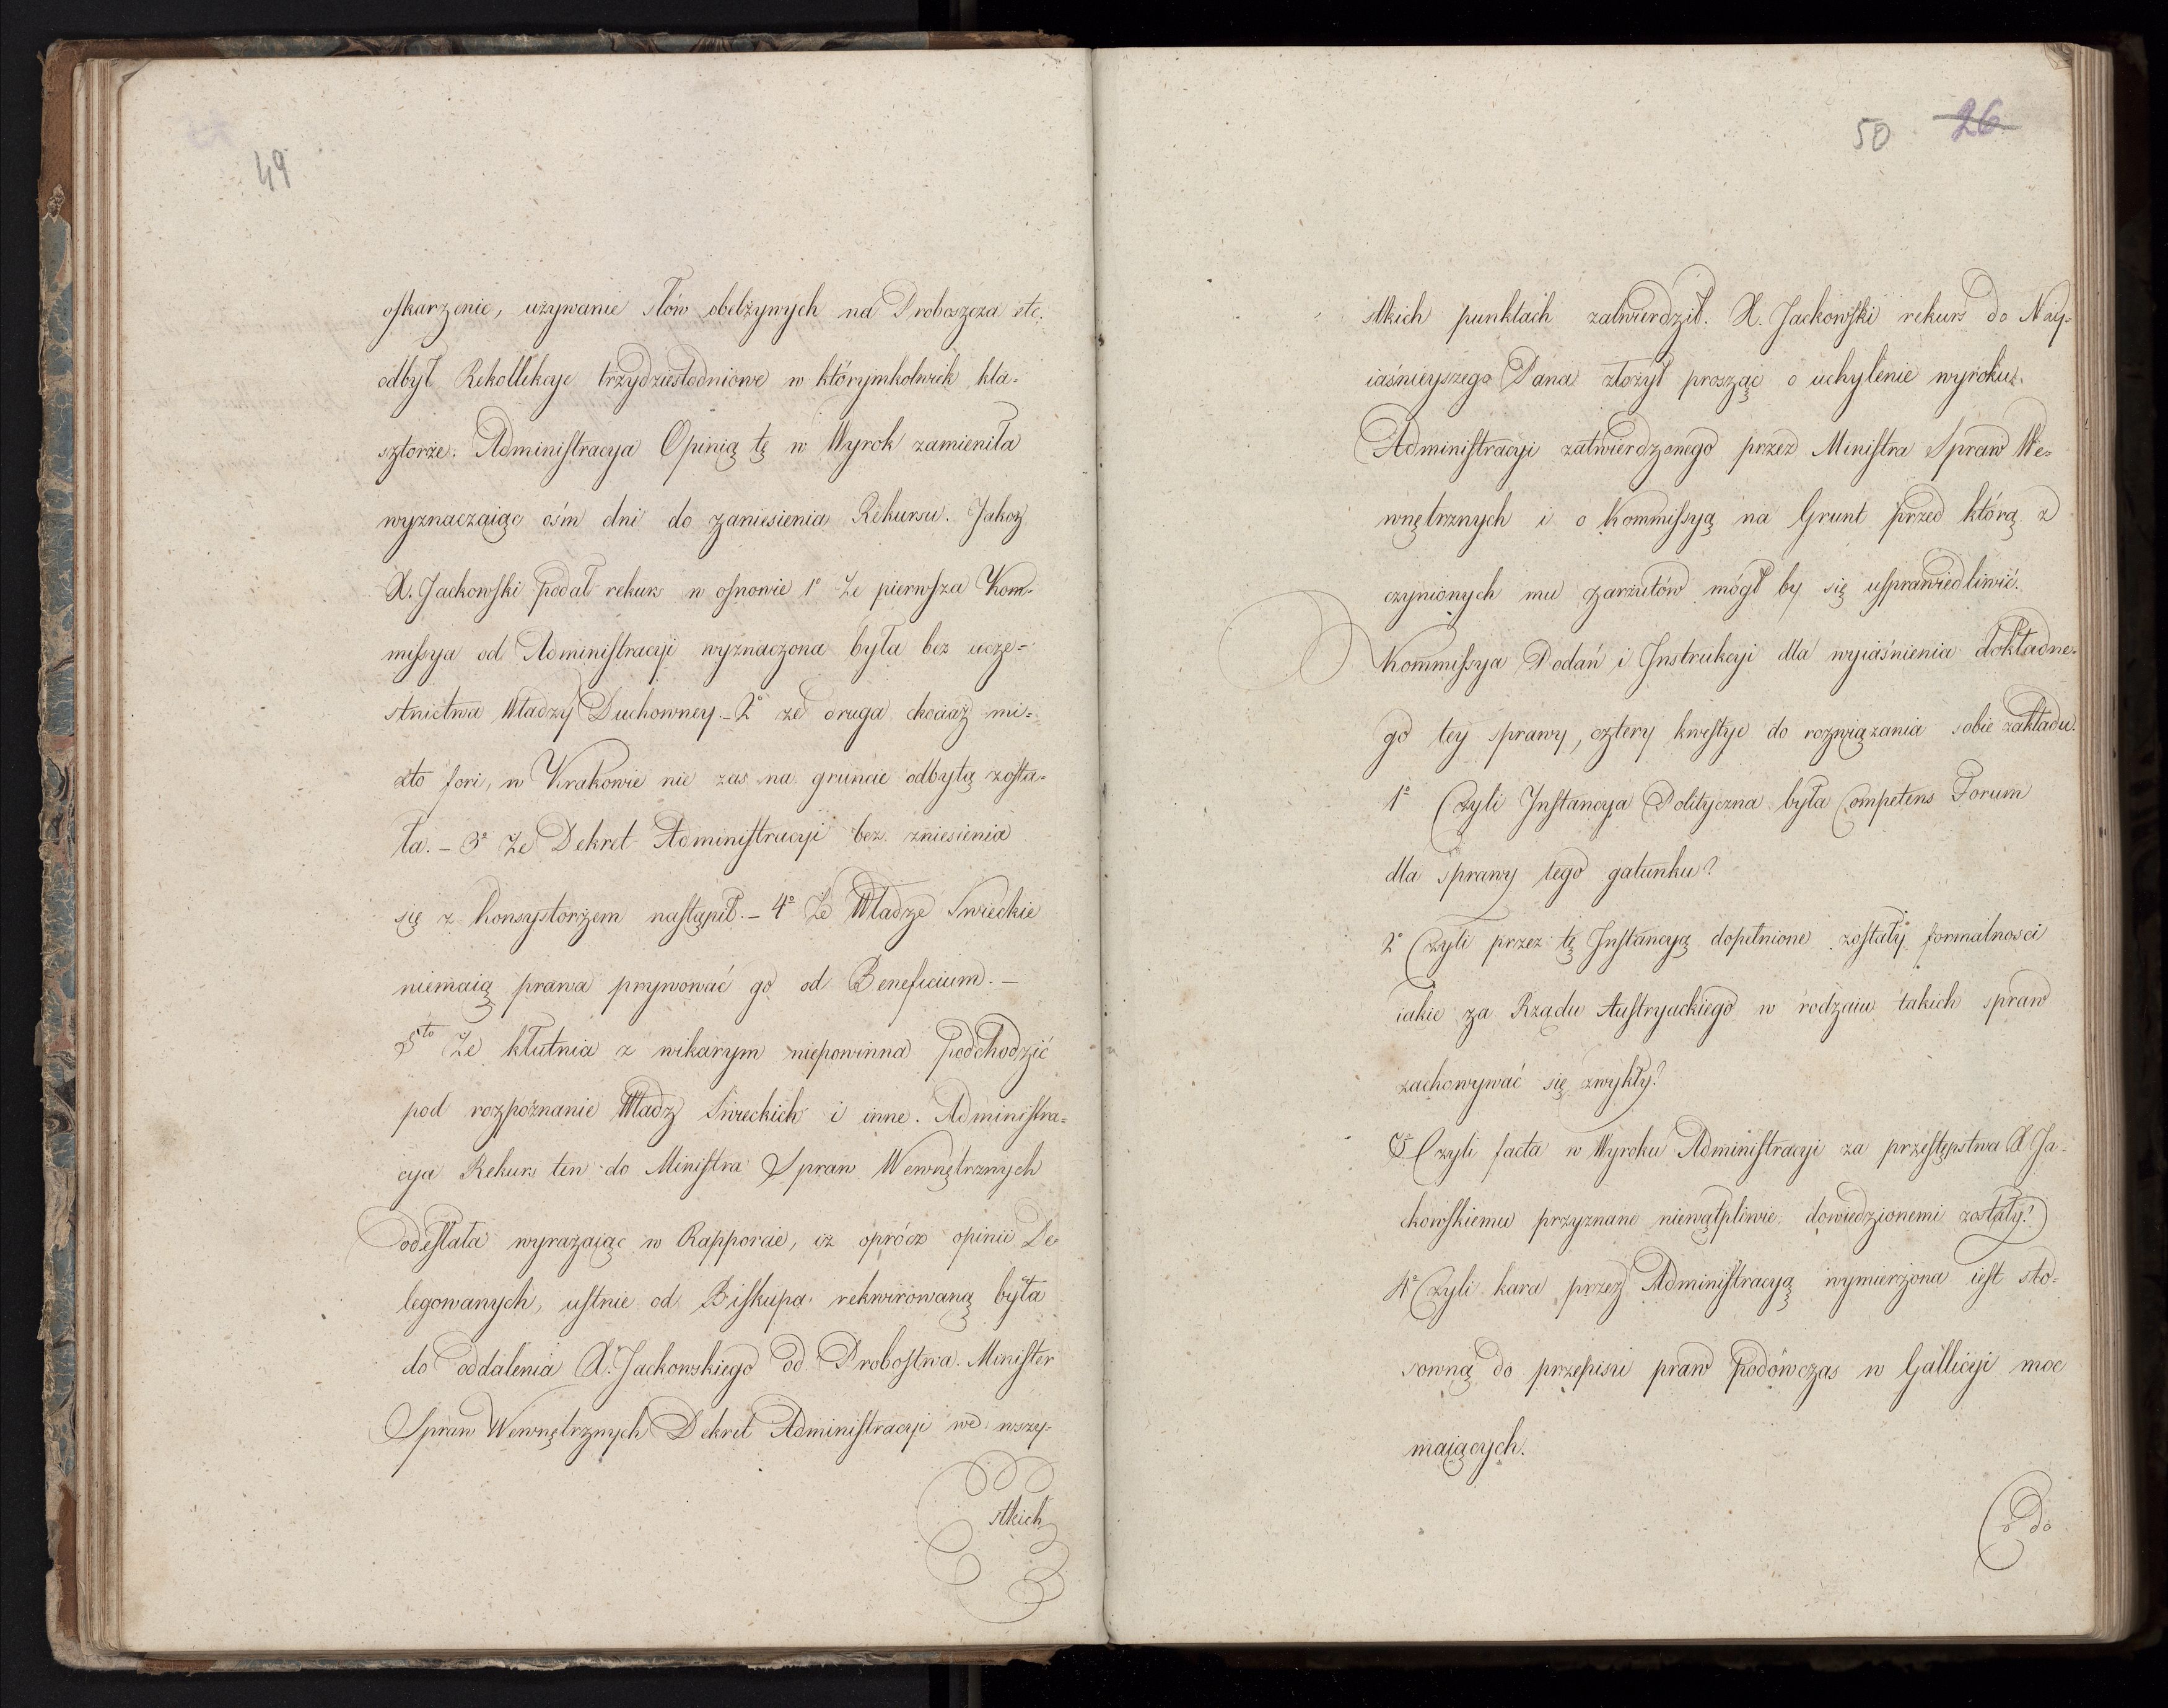 49
oskarżenie, używanie słów obelżywych na Proboszcza etc.
odbył Rekollekcye trzydziestodniowe w którymkolwiek kla-
sztorze. Administracya Opinią tę w Wyrok zamieniła
wyznaczaiąc ośm dni do zaniesienia Rekursu. Jakoż
X. Jackowski podał rekurs w osnowie 1° Że pierwsza Kom-
missya od Administracyi wyznaczona była bez ucze-
stnictwa Władzy Duchowney. - 2° że druga chociaż mi-
xto fori, w Krakowie nie zas na gruncie odbytą zosta-
ła. - 3° Że Dekret Administracyi bez zniesienia
się z Konsystorzem nastąpił. - 4° Że Władze Swieckie
niemaią prawa prywować go od Beneficium. -
5to Że kłutnia z wikarym niepowinna podchodzić
pod rozpoznanie Władz Swieckich i inne. Administra-
cya Rekurs ten do Ministra Spraw Wewnętrznych
odesłała wyrażaiąc w Rapporcie, iż oprócz opinii De-
legowanych, ustnie od Biskupa rekwirowaną była
do oddalenia X. Jackowskiego od Probostwa. Minister
Spraw Wewnętrznych Dekret Administracyi we wszy-
stkich
50 26
stkich punktach zatwierdził. X. Jackowski rekurs do Nay-
iaśnieyszego Pana złożył prosząc o uchylenie wyroku
Administracyi zatwierdzonego przez Ministra Spraw We-
wnętrznych i o Kommissyą na Grunt przed którą z
czynionych mu zarzutów mógł by się usprawiedliwić.
Kommissya Podań i Instrukcyi dla wyiaśnienia dokładne-
go tey sprawy, cztery kwestye do rozwiązania sobie zakłada.
1° Czyli Instancya Polityczna była Competens Forum
dla sprawy tego gatunku?
2° Czyli przez tę Instancyą dopełnione zostały formalnosci
iakie za Rządu Austryackiego w rodzaiu takich spraw
zachowywać się zwykły?
3° Czyli facta w Wyroku Administracyi za przestępstwa X Ja-
ckowskiemu przyznane niewątpliwie dowiedzionemi zostały?
4° Czyli kara przez Administracyą wymierzona iest sto-
sowną do przepisu praw podówczas w Gallicyi moc
maiących.
Co do